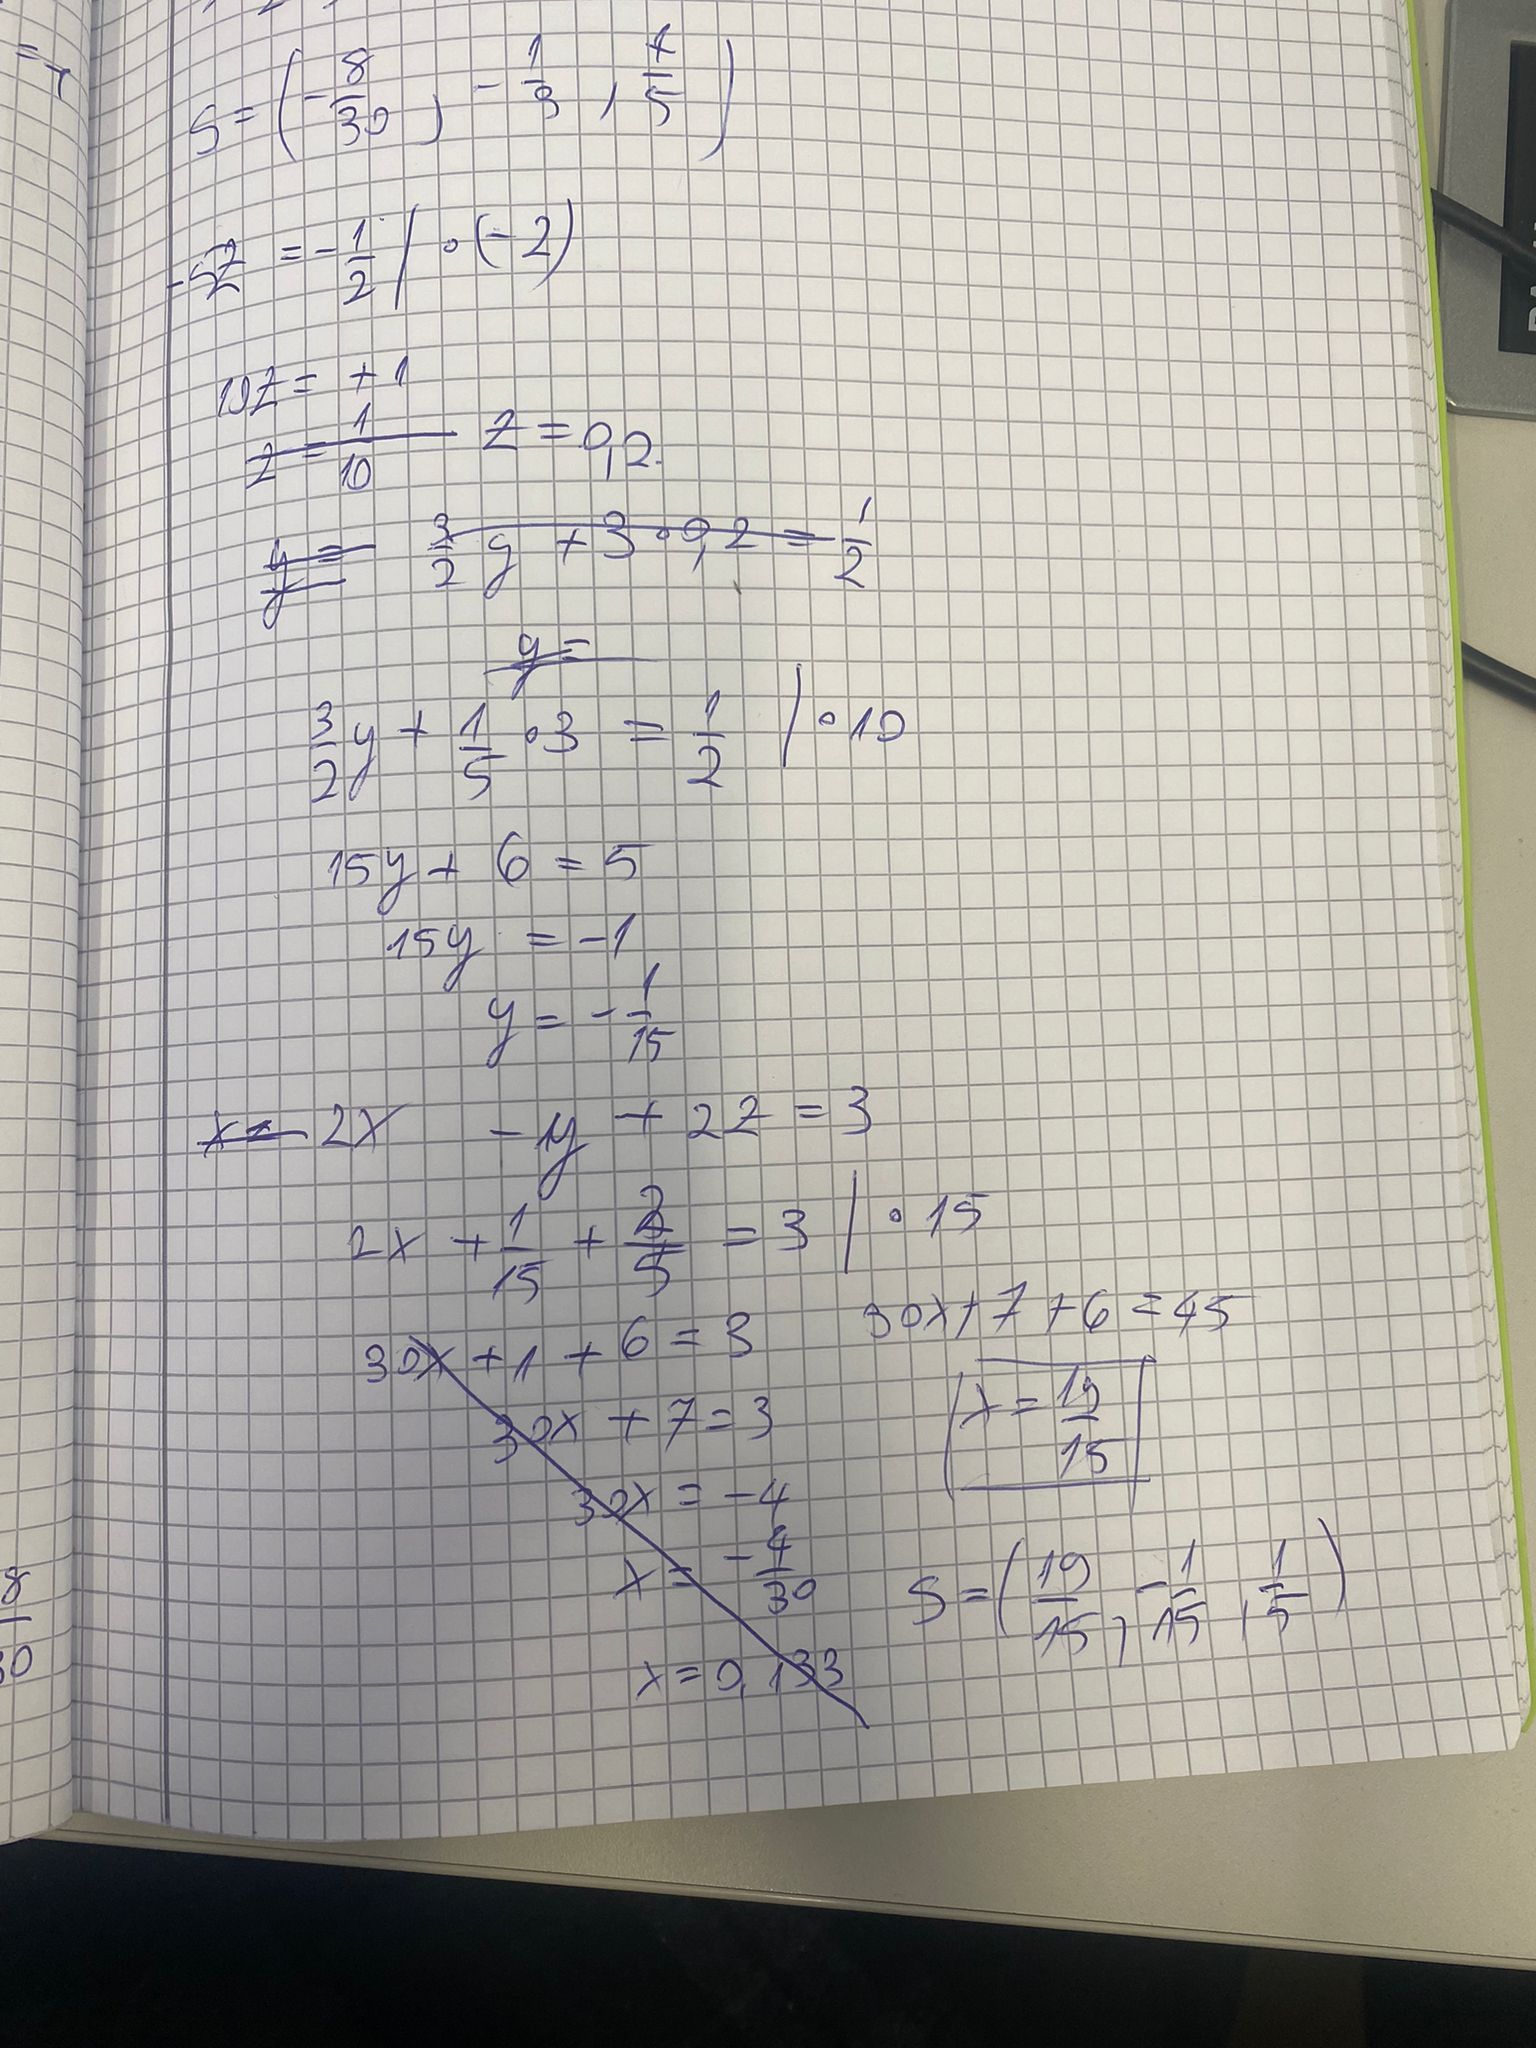 S = (-8/30, -1/3, 1/5)
-5z = -1/2 | · (-2)
10z = +1
z = 1/10 z = 0,2
y = 3/2 y + 3 · 0,2 = 1/2
y
y =
3/2 y + 1/5 · 3 = 1/2 | · 10
15y + 6 = 5
15y = -1
y = -1/15
x = 2x - 1y + 2z = 3
2x + 1/15 + 2/5 = 3 | · 15
30x + 1 + 6 = 3
30x + 7 + 6 = 45
30x + 7 = 3
x = 19/15
30x = -4
x = -4/30
S = (19/15, -1/15, 1/5)
x = 0,133
8
30